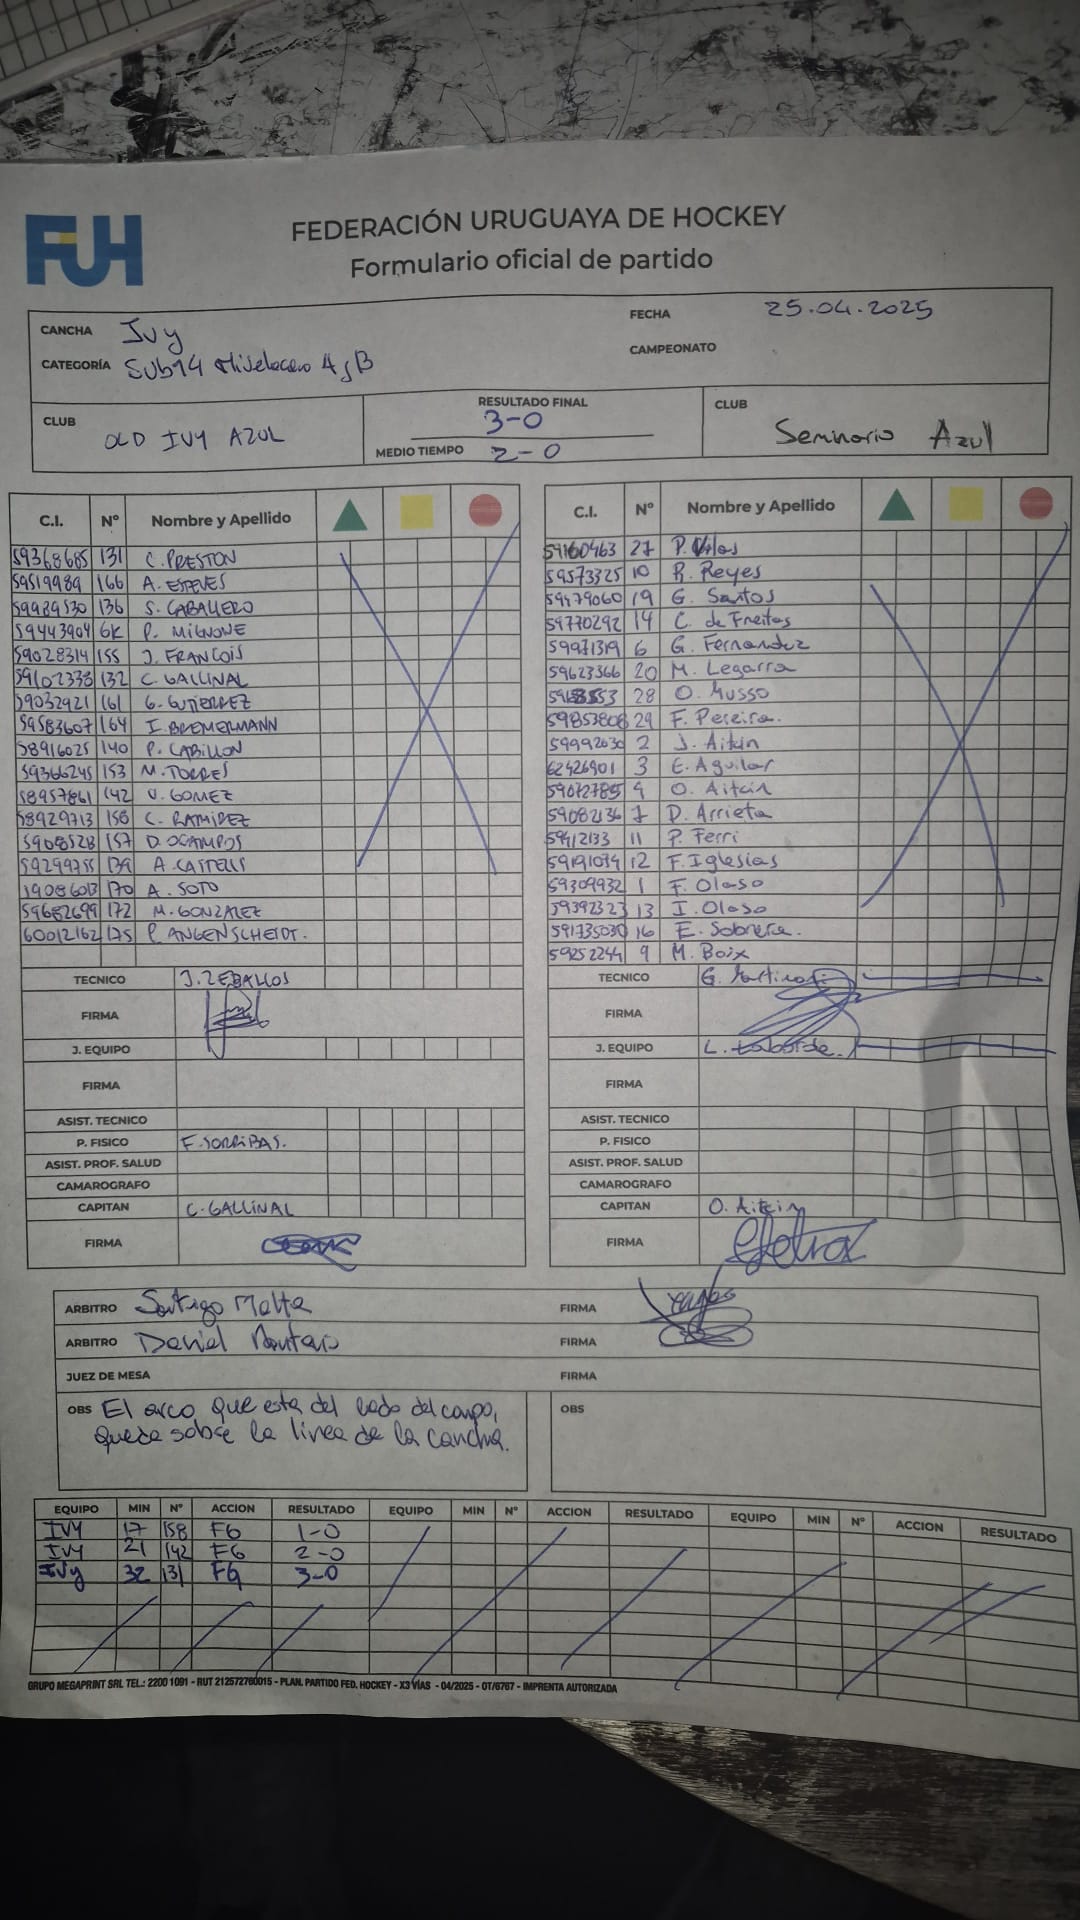 FUH
FEDERACIÓN URUGUAYA DE HOCKEY
Formulario oficial de partido
CANCHA Ivy
FECHA 25.04.2025
CATEGORÍA Sub14 A y B
CAMPEONATO
CLUB OLD IVY AZUL
RESULTADO FINAL 3-0
MEDIO TIEMPO 2-0
CLUB Seminario Azul
C.I. Nº Nombre y Apellido
59368685 131 C. PRESTON
59519989 166 A. ESTEVES
59989530 136 S. CABALLERO
59443904 6K P. MIGNONE
59028314 155 J. FRANCOIS
59102338 132 C. GALLINAL
59032921 161 G. GUTIERREZ
59583607 164 I. BREMERMANN
58916025 140 P. CABILLON
59366245 153 M. TORRES
58957861 142 V. GOMEZ
58929713 158 C. RAMIREZ
5908528 157 D. OCAMPOS
59299755 139 A. CASTELLS
170 A. SOTO
59682699 172 M. GONZALEZ
60012162 175 P. ANGENSCHEIDT.
TECNICO J. ZEBALLOS
FIRMA
J. EQUIPO
FIRMA
ASIST. TECNICO
P. FISICO F. SORRIBAS.
ASIST. PROF. SALUD
CAMAROGRAFO
CAPITAN C. GALLINAL
FIRMA
C.I. Nº Nombre y Apellido
59160463 27 P. Vilas
59573325 10 R. Reyes
59479060 19 G. Santos
59770292 14 C. de Freitas
59971319 6 G. Fernandez
59623366 20 M. Legarra
28 O. Musso
59853808 29 F. Pereira.
59992030 2 J. Aitcin
62426901 3 E. Aguilar
59072785 4 O. Aitcin
59082136 7 D. Arrieta
59412133 11 P. Ferri
59191074 12 F. Iglesias
59309932 1 F. Olaso
59392323 13 I. Olaso
59173503 16 E. Sobrera.
59252244 9 M. Boix
TECNICO G.
FIRMA
J. EQUIPO L. Laborde.
FIRMA
ASIST. TECNICO
P. FISICO
ASIST. PROF. SALUD
CAMAROGRAFO
CAPITAN O. Aitcin
FIRMA
ARBITRO Santiago Malta FIRMA
ARBITRO Daniel FIRMA
JUEZ DE MESA FIRMA
OBS El arco que esta del lado del campo,
queda sobre la linea de la cancha.
OBS
EQUIPO MIN Nº ACCION RESULTADO EQUIPO MIN Nº ACCION RESULTADO EQUIPO MIN Nº ACCION RESULTADO
IVY 17 158 FG 1-0
IVY 21 142 FG 2-0
IVy 32 131 FG 3-0
GRUPO MEGAPRINT SRL TEL.: 2200 1091 - RUT 212572760015 - PLAN. PARTIDO FED. HOCKEY - X3 VÍAS - 04/2025 - OT/6767 - IMPRENTA AUTORIZADA